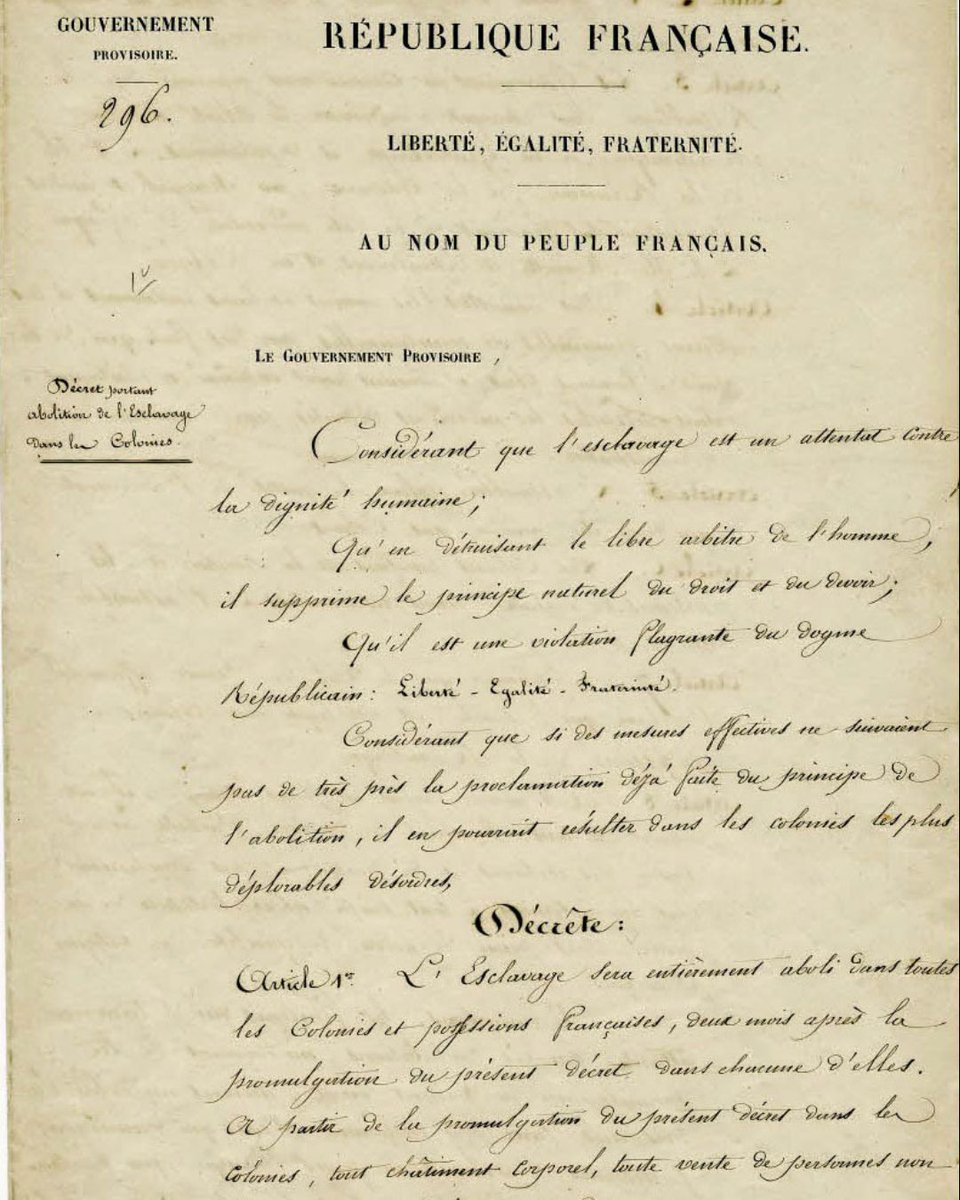 GOUVERNEMENT
PROVISOIRE.
296.
RÉPUBLIQUE FRANÇAISE.
LIBERTÉ, ÉGALITÉ, FRATERNITÉ.
AU NOM DU PEUPLE FRANÇAIS.
LE GOUVERNEMENT PROVISOIRE,
Décret portant
abolition de l'Esclavage
dans les Colonies.
Considérant que l'esclavage est un attentat contre
la dignité humaine;
Qu'en détruisant le libre arbitre de l'homme,
il supprime le principe naturel du droit et du devoir;
Qu'il est une violation flagrante du dogme
Républicain: Liberté - Egalité - Fraternité.
Considérant que si des mesures effectives ne suivaient
pas de très près la proclamation déjà faite du principe de
l'abolition, il en pourrait résulter dans les colonies les plus
déplorables désordres,
Décrète:
Article 1er. L'Esclavage sera entièrement aboli dans toutes
les Colonies et possessions françaises, deux mois après la
promulgation du présent décret dans chacune d'elles.
A partir de la promulgation du présent décret dans les
Colonies, tout châtiment corporel, toute vente de personnes non